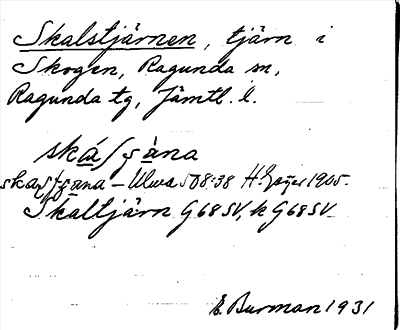 Skalstjärnen, tjärn i
Skogen, Ragunda sn,
Ragunda tg, Jämtl. l.
skáʃʃàna
skaʃʃàna – Ulwa 508:38 H. Geijer 1905.
Skaltjärn G68SV, k G68SV
E. Burman 1931